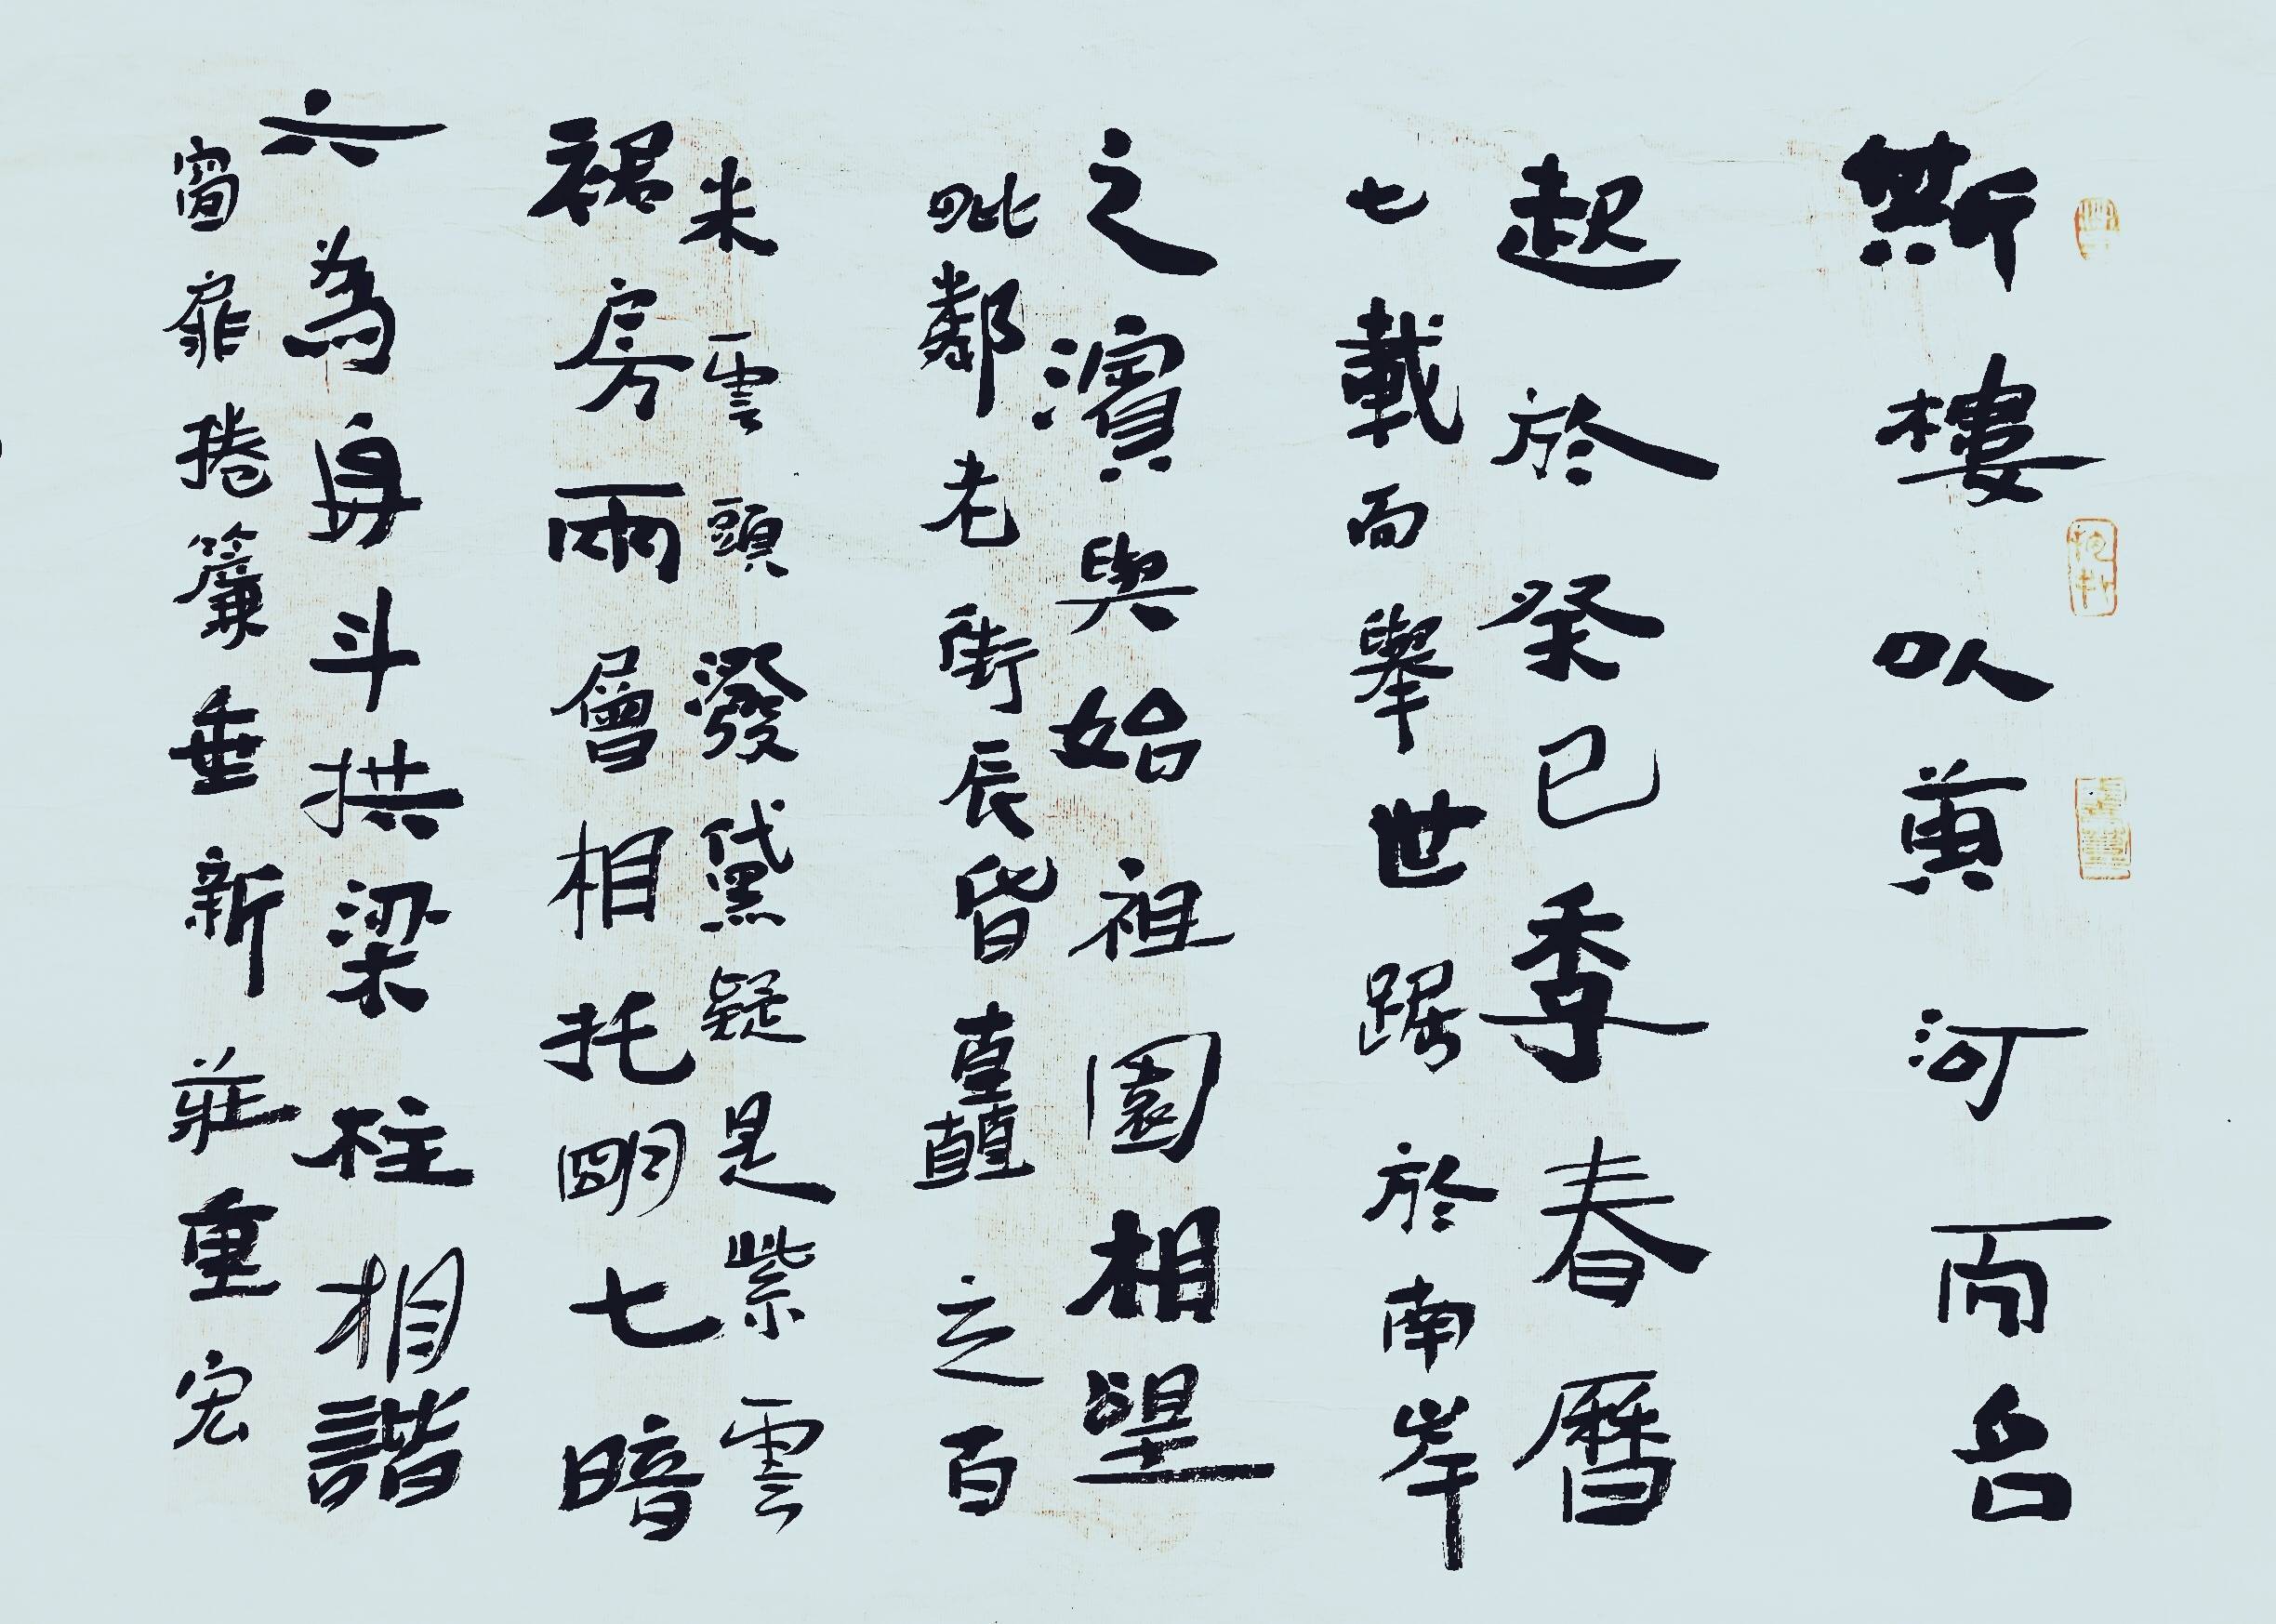 斯樓以黃河而名
起於癸巳季春曆
七載而舉世踞於南岸
之濱與始祖園相望
毗鄰老街辰皆矗矗之百
米雲頭潑黛疑是紫雲
裙房兩層相托明七暗
六為身斗拱梁柱相諧
窗扉捲簾垂新莊重宏